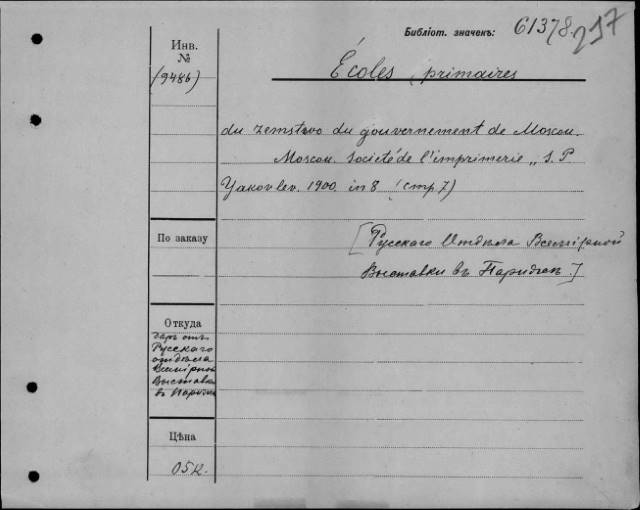 Библіот. значекъ: 61378. 217
Инв.
№
(9486)
Écoles primaires
du zemstvo du gouvernement de Moscou.
Moscou. Societé de l'imprimerie „S. P
Yakovlev. 1900. in 8 (стр. 7)
По заказу
[Русскаго Отдѣла Всемірной
Выставки въ Парижѣ.]
Откуда
Даръ отъ
Русскаго
отдѣла
Всемірной
Выставки
въ Парижѣ
Цѣна
05 к.